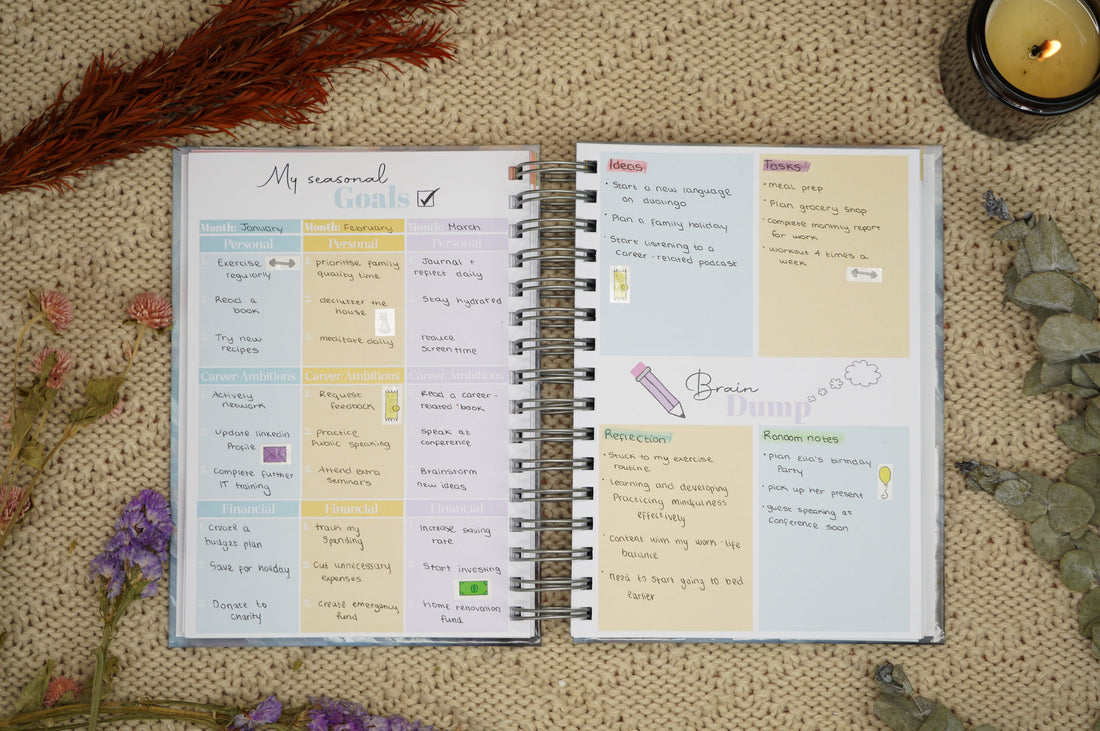 My seasonal
Goals
Month: January
Personal
1. Exercise
regularly
2. Read a
book
3. Try new
recipes
Career Ambitions
1. Actively
network
2. Update linkedin
Profile
3. Complete further
IT training
Financial
1. Create a
budget plan
2. Save for holiday
3. Donate to
charity
Month: February
Personal
1. prioritise family
quality time
2. declutter the
house
3. meditate daily
Career Ambitions
1. Request
feedback
2. Practice
Public speaking
3. Attend extra
Seminar's
Financial
1. track my
Spending
2. Cut unnecessary
expenses
3. create emergency
fund
Month: March
Personal
1. Journal +
reflect daily
2. Stay hydrated
3. reduce
Screen time
Career Ambitions
1. Read a career-
related book
2. Speak at
conference
3. Brainstorm
new ideas
Financial
1. Increase saving
rate
2. Start investing
3. home renovation
fund
Ideas
• Start a new language
on duolingo
• Plan a family holiday
• Start listening to a
Career-related podcast
Tasks
• meal prep
• Plan grocery shop
• complete monthly report
for work
• workout 4 times a
week
Brain
Dump
Reflection
• Stuck to my exercise
routine
• learning and developing
Practicing mindfulness
effectively
• Content with my work-life
balance
• need to start going to bed
earlier
Random notes
• plan Ella's birthday
Party
• pick up her present
• guest speaking at
Conference soon